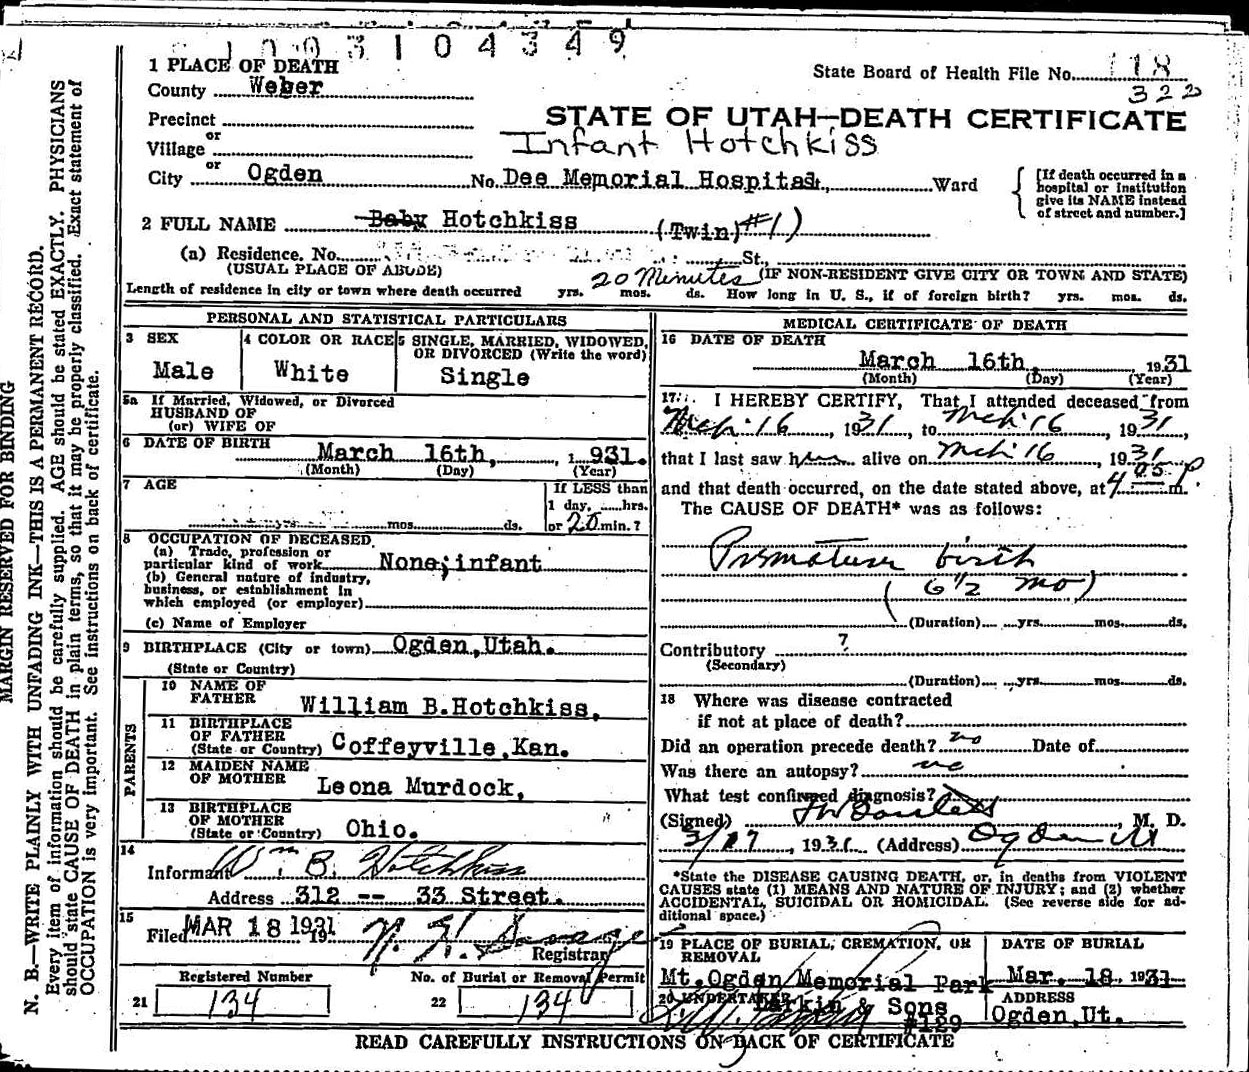 1003104349
1 PLACE OF DEATH
County Weber
State Board of Health File No. 118
322
Precinct
or
Village
STATE OF UTAH—DEATH CERTIFICATE
Infant Hotchkiss
or
City Ogden No. Dee Memorial Hospital, Ward
[If death occurred in a hospital or institution give its NAME instead of street and number.]
2 FULL NAME Baby Hotchkiss (Twin) #1)
(a) Residence. No. St.,
(USUAL PLACE OF ABODE) 20 Minutes (IF NON-RESIDENT GIVE CITY OR TOWN AND STATE)
Length of residence in city or town where death occurred yrs. mos. ds. How long in U. S., if of foreign birth? yrs. mos. ds.
PERSONAL AND STATISTICAL PARTICULARS
3 SEX
Male
4 COLOR OR RACE
White
5 SINGLE, MARRIED, WIDOWED, OR DIVORCED (Write the word)
Single
5a If Married, Widowed, or Divorced
HUSBAND OF
(or) WIFE OF
6 DATE OF BIRTH March 16th, 1931.
(Month) (Day) (Year)
7 AGE
yrs. mos. ds.
If LESS than
1 day, ......hrs.
or 20 min.?
8 OCCUPATION OF DECEASED
(a) Trade, profession or
particular kind of work None; infant
(b) General nature of industry,
business, or establishment in
which employed (or employer)
(c) Name of Employer
9 BIRTHPLACE (City or town) Ogden, Utah.
(State or Country)
PARENTS
10 NAME OF
FATHER William B. Hotchkiss,
11 BIRTHPLACE
OF FATHER
(State or Country) Coffeyville, Kan.
12 MAIDEN NAME
OF MOTHER Leona Murdock,
13 BIRTHPLACE
OF MOTHER
(State or Country) Ohio.
14
Informant Wm. B. Hotchkiss
Address 312 -- 33 Street.
15
Filed MAR 18 1931 19
Registrar
Registered Number
21 134
No. of Burial or Removal Permit
22 134
MEDICAL CERTIFICATE OF DEATH
16 DATE OF DEATH
March 16th, 1931
(Month) (Day) (Year)
17. I HEREBY CERTIFY, That I attended deceased from
Mch 16, 1931, to Mch 16, 1931,
that I last saw him alive on Mch 16, 1931
and that death occurred, on the date stated above, at 4 05 P m.
The CAUSE OF DEATH* was as follows:
Premature birth
(6 1/2 mo)
(Duration) yrs. mos. ds.
Contributory ?
(Secondary)
(Duration) yrs. mos. ds.
18 Where was disease contracted
if not at place of death?
Did an operation precede death? no Date of
Was there an autopsy? no
What test confirmed diagnosis?
(Signed) M. D.
3/17, 1931 (Address) Ogden Ut
*State the DISEASE CAUSING DEATH, or, in deaths from VIOLENT
CAUSES state (1) MEANS AND NATURE OF INJURY; and (2) whether
ACCIDENTAL, SUICIDAL OR HOMICIDAL. (See reverse side for ad-
ditional space.)
19 PLACE OF BURIAL, CREMATION, OR
REMOVAL
Mt. Ogden Memorial Park
DATE OF BURIAL
Mar. 18 1931
20 UNDERTAKER
Larkin & Sons
#129
ADDRESS
Ogden, Ut.
READ CAREFULLY INSTRUCTIONS ON BACK OF CERTIFICATE
MARGIN RESERVED FOR BINDING
N. B.—WRITE PLAINLY WITH UNFADING INK—THIS IS A PERMANENT RECORD.
Every item of information should be carefully supplied. AGE should be stated EXACTLY. PHYSICIANS
should state CAUSE OF DEATH in plain terms, so that it may be properly classified. Exact statement of
OCCUPATION is very important. See instructions on back of certificate.